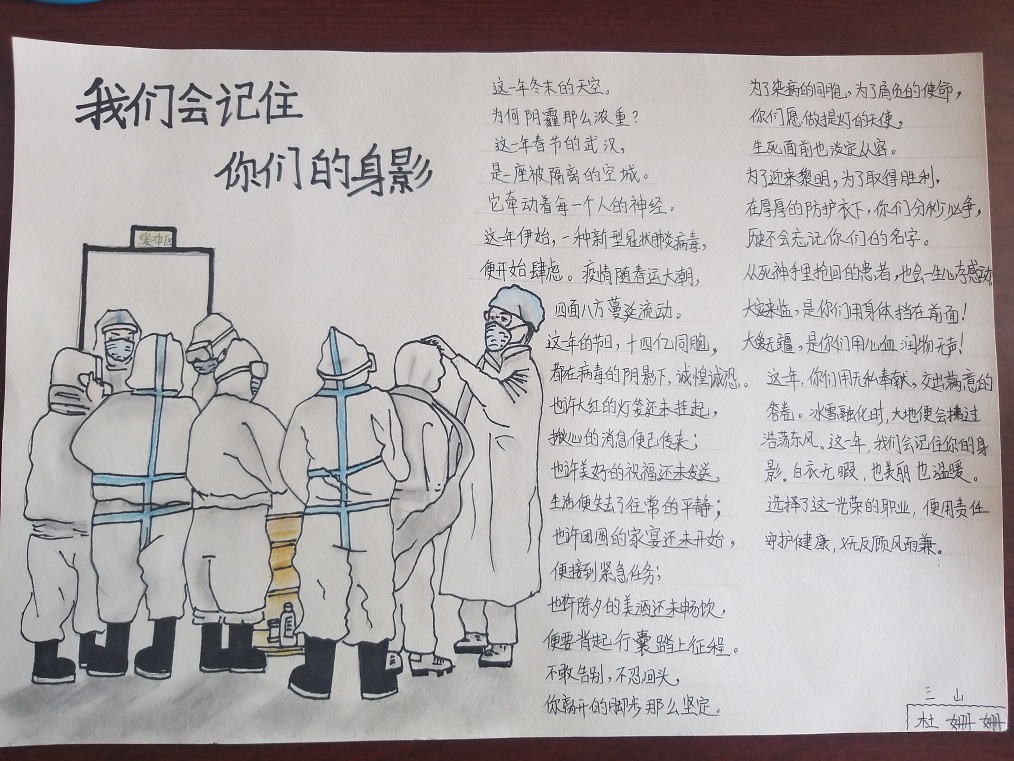 我们会记住
你们的身影
缓冲区
这一年冬末的天空。
为何阴霾那么浓重？
这一年春节的武汉，
是一座被隔离的空城。
它牵动着每一个人的神经。
这一年伊始，一种新型冠状肺炎病毒，
便开始肆虐。疫情随春运大潮，
四面八方蔓延流动。
这一年的节日，十四亿同胞，
都在病毒的阴影下，诚惶诚恐。
也许大红的灯笼还未挂起，
揪心的消息便已传来；
也许美好的祝福还未发送，
生活便失去了往常的平静；
也许团圆的家宴还未开始，
便接到紧急任务；
也许除夕的美酒还未畅饮，
便要背起行囊踏上征程。
不敢告别，不忍回头，
你离开的脚步那么坚定。
为了染病的同胞，为了肩负的使命，
你们愿做提灯的天使，
生死面前也淡定从容。
为了迎来黎明，为了取得胜利，
在厚厚的防护衣下，你们分秒必争，
历史不会忘记你们的名字。
从死神手里抢回的患者，也会一生心存感动。
大灾来临，是你们用身体挡在前面！
大爱无疆，是你们用心血润物无声！
这一年，你们用无私奉献，交出满意的
答卷。冰雪融化时，大地便会拂过
浩荡东风。这一年，我们会记住你的身
影。白衣无暇，也美丽也温暖。
选择了这一光荣的职业，便用责任
守护健康，义无反顾风雨兼。
三 山
杜 姗 姗